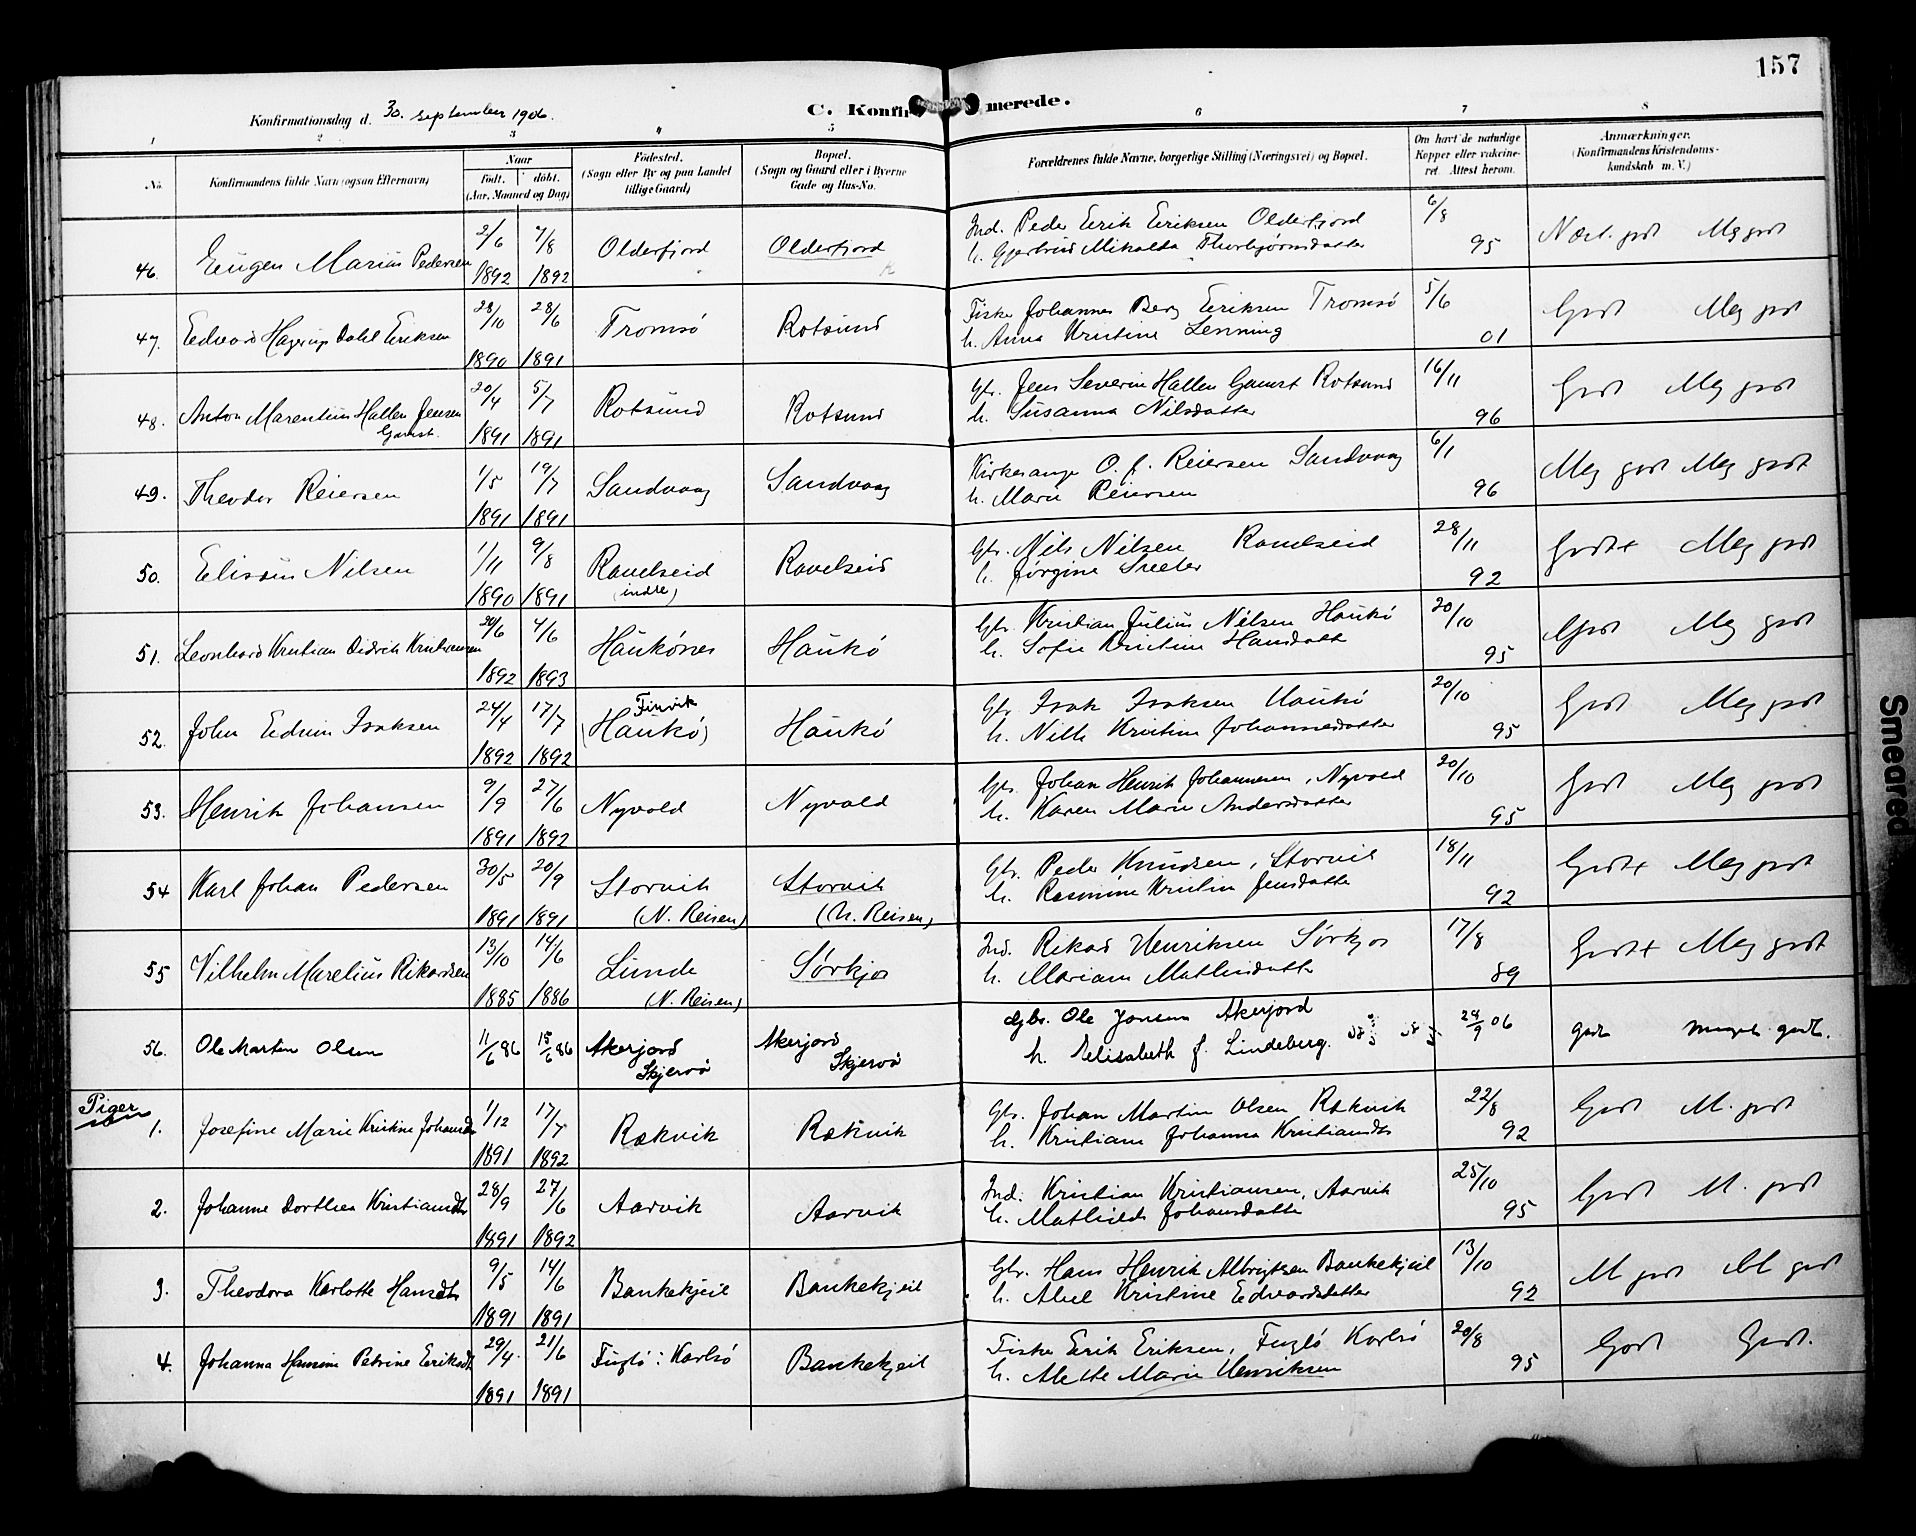 157
Konfirmationsdag d. 30. september 1906.
C. Konfirmerede.
1 2 3 4 5 6 7 8
No. Konfirmandens fulde Navn (ogsaa Efternavn)
Naar
Født. døbt.
(Aar, Maaned og Dag)
Fødested.
(Sogn eller By og paa Landet
tillige Gaard)
Bopæl.
(Sogn og Gaard eller i Byerne
Gade og Hus-No.
Forældrenes fulde Navne, borgerlige Stilling (Næringsvei) og Bopæl.
Om havt de naturlige
Kopper eller vakcine-
ret. Attest herom.
Anmærkninger.
(Konfirmandens Kristendoms-
kundskab m. V.)
46. Eugen Marius Pedersen 2/6 1892 7/8 1892 Olderfjord Olderfjord
Ind. Peder Eerik Eeriksen Olderfjord
h. Gjertrud Mikalda Thorbjørnsdatter
6/8 95 Nært. godt Meg godt
47. Edvard Hagerup Dahl Eeriksen 28/10 1890 28/6 1891 Tromsø Rotsund
Fisker Johannes Berg Eeriksen Tromsø
h. Anna Kristine Lenning
5/6 01 Godt Meg godt
48. Anton Marentius Hallen Jensen
Gamst. 20/4 1891 5/7 1891 Rotsund Rotsund
Gbr. Jens Severin Hallen Gamst Rotsund
h. Susanna Nilsdatter
16/11 96 Godt Meg godt
49. Theodor Reiersen 1/5 1891 19/7 1891 Sandvaag Sandvaag
Kirkesanger O. J. Reiersen Sandvaag
h. Marie Reiersen
6/11 96 Meg godt Meg godt
50. Elisæus Nilsen 1/11 1890 9/8 1891 Ravelseid
(indre) Ravelseid
Gbr. Nils Nilsen Ravelseid
h. Jørgine Sreeler
28/11 92 Godt+ Meg godt
51. Leonhard Kristian Didrik Kristiansen 20/6 1892 4/6 1893 Haukønes Haukø
Gbr. Kristian Julius Nilsen Haukø
h. Sofie Kristine Hansdatt
20/10 95 Godt Meg godt
52. John Edvin Isaksen 24/4 1892 17/7 1892 Finvik
(Haukø) Haukø
Gbr. Isak Isaksen Haukø
h. Nille Kristine Johannesdatter
20/10 95 Godt Meg godt
53. Henrik Johansen 9/9 1891 27/6 1892 Nyvold Nyvold
Gbr. Johan Henrik Johannesen, Nyvold
h. Karen Marie Andersdatter
20/10 95 Godt Meg godt
54 Karl Johan Pedersen 30/5 1891 20/9 1891 Storvik
(N. Reisen) Storvik
(N. Reisen)
Gbr. Peder Knudsen, Storvik
h. Rasmine Kristin Jensdatter
18/11 92 Godt+ Meg godt
55 Vilhelm Marelius Rikardsen 13/10 1885 14/6 1886 Lunde
(N. Reisen) Sørkjos
Ind. Rikard Henriksen Sørkjos
h. Mariam Mathisdatt
17/8 89 Godt+ Meg godt
56. Ole Martin Olsen 11/6 86 15/6 86 Akerjord
Skjervø Akerjord
Skjervø
Gbr. Ole Jonsen Akerjord
h. Elisabeth f. Lindeberg.
24/9 06 godt meget godt.
Piger
1. Josefine Marie Kristine Johansdt 1/12 1891 17/7 1892 Rækvik Rækvik
Gbr. Johan Martin Olsen Rækvik
h. Kristiane Johanna Kristiansdt
22/8 92 Godt M. godt
2. Johanne Dorthea Kristiansdt 28/9 1891 27/6 1892 Aarvik Aarvik
Ind. Kristian Kristiansen, Aarvik
h. Mathilde Johansdatter
25/10 95 Godt M. godt
3. Theodora Karlotte Hansdt 9/5 1891 14/6 1891 Bankekjeil Bankekjeil
Gbr. Hans Henrik Albrigtsen Bankekjeil
h. Abel Kristine Edvardsdatter
13/10 92 M godt M godt
4. Johanna Hansine Petrine Eeriksdt 29/4 1891 21/6 1891 Fuglø i Karlsø Bankekjeil
Fisker Eerik Eriksen, Fuglø Karlsø
h. Alette Marie Henriksen
20/8 95 Godt Godt.
Smeared